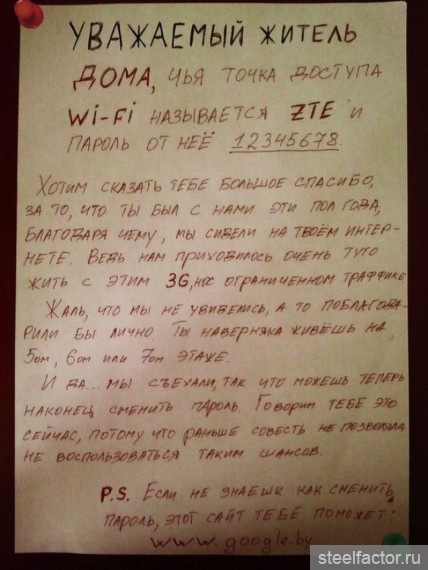 УВАЖАЕМЫЙ ЖИТЕЛЬ
ДОМА, ЧЬЯ ТОЧКА ДОСТУПА
Wi-Fi НАЗЫВАЕТСЯ ZTE И
ПАРОЛЬ ОТ НЕЁ 12345678.
ХОТИМ СКАЗАТЬ ТЕБЕ БОЛЬШОЕ СПАСИБО,
ЗА ТО, ЧТО ТЫ БЫЛ С НАМИ ЭТИ ПОЛ ГОДА,
БЛАГОДАРЯ ЧЕМУ, МЫ СИДЕЛИ НА ТВОЁМ ИНТЕР-
НЕТЕ. ВЕДЬ НАМ ПРИХОДИЛОСЬ ОЧЕНЬ ТУГО
ЖИТЬ С ЭТИМ 3G, ОГРАНИЧЕННОМ ТРАФФИКЕ
ЖАЛЬ, ЧТО МЫ НЕ УВИДЕЛИСЬ, А ТО ПОБЛАГОДА-
РИЛИ БЫ ЛИЧНО. ТЫ НАВЕРНЯКА ЖИВЁШЬ НА
5ОМ, 6ОМ ИЛИ 7ОМ ЭТАЖЕ.
И ДА... МЫ СЪЕХАЛИ, ТАК ЧТО МОЖЕШЬ ТЕПЕРЬ
НАКОНЕЦ СМЕНИТЬ ПАРОЛЬ. ГОВОРИМ ТЕБЕ ЭТО
СЕЙЧАС, ПОТОМУ ЧТО РАНЬШЕ СОВЕСТЬ НЕ ПОЗВОЛЯЛА
НЕ ВОСПОЛЬЗОВАТЬСЯ ТАКИМ ШАНСОМ.
P.S. ЕСЛИ НЕ ЗНАЕШЬ КАК СМЕНИТЬ
ПАРОЛЬ, ЭТОТ САЙТ ТЕБЕ ПОМОЖЕТ:
www.google.by
steelfactor.ru